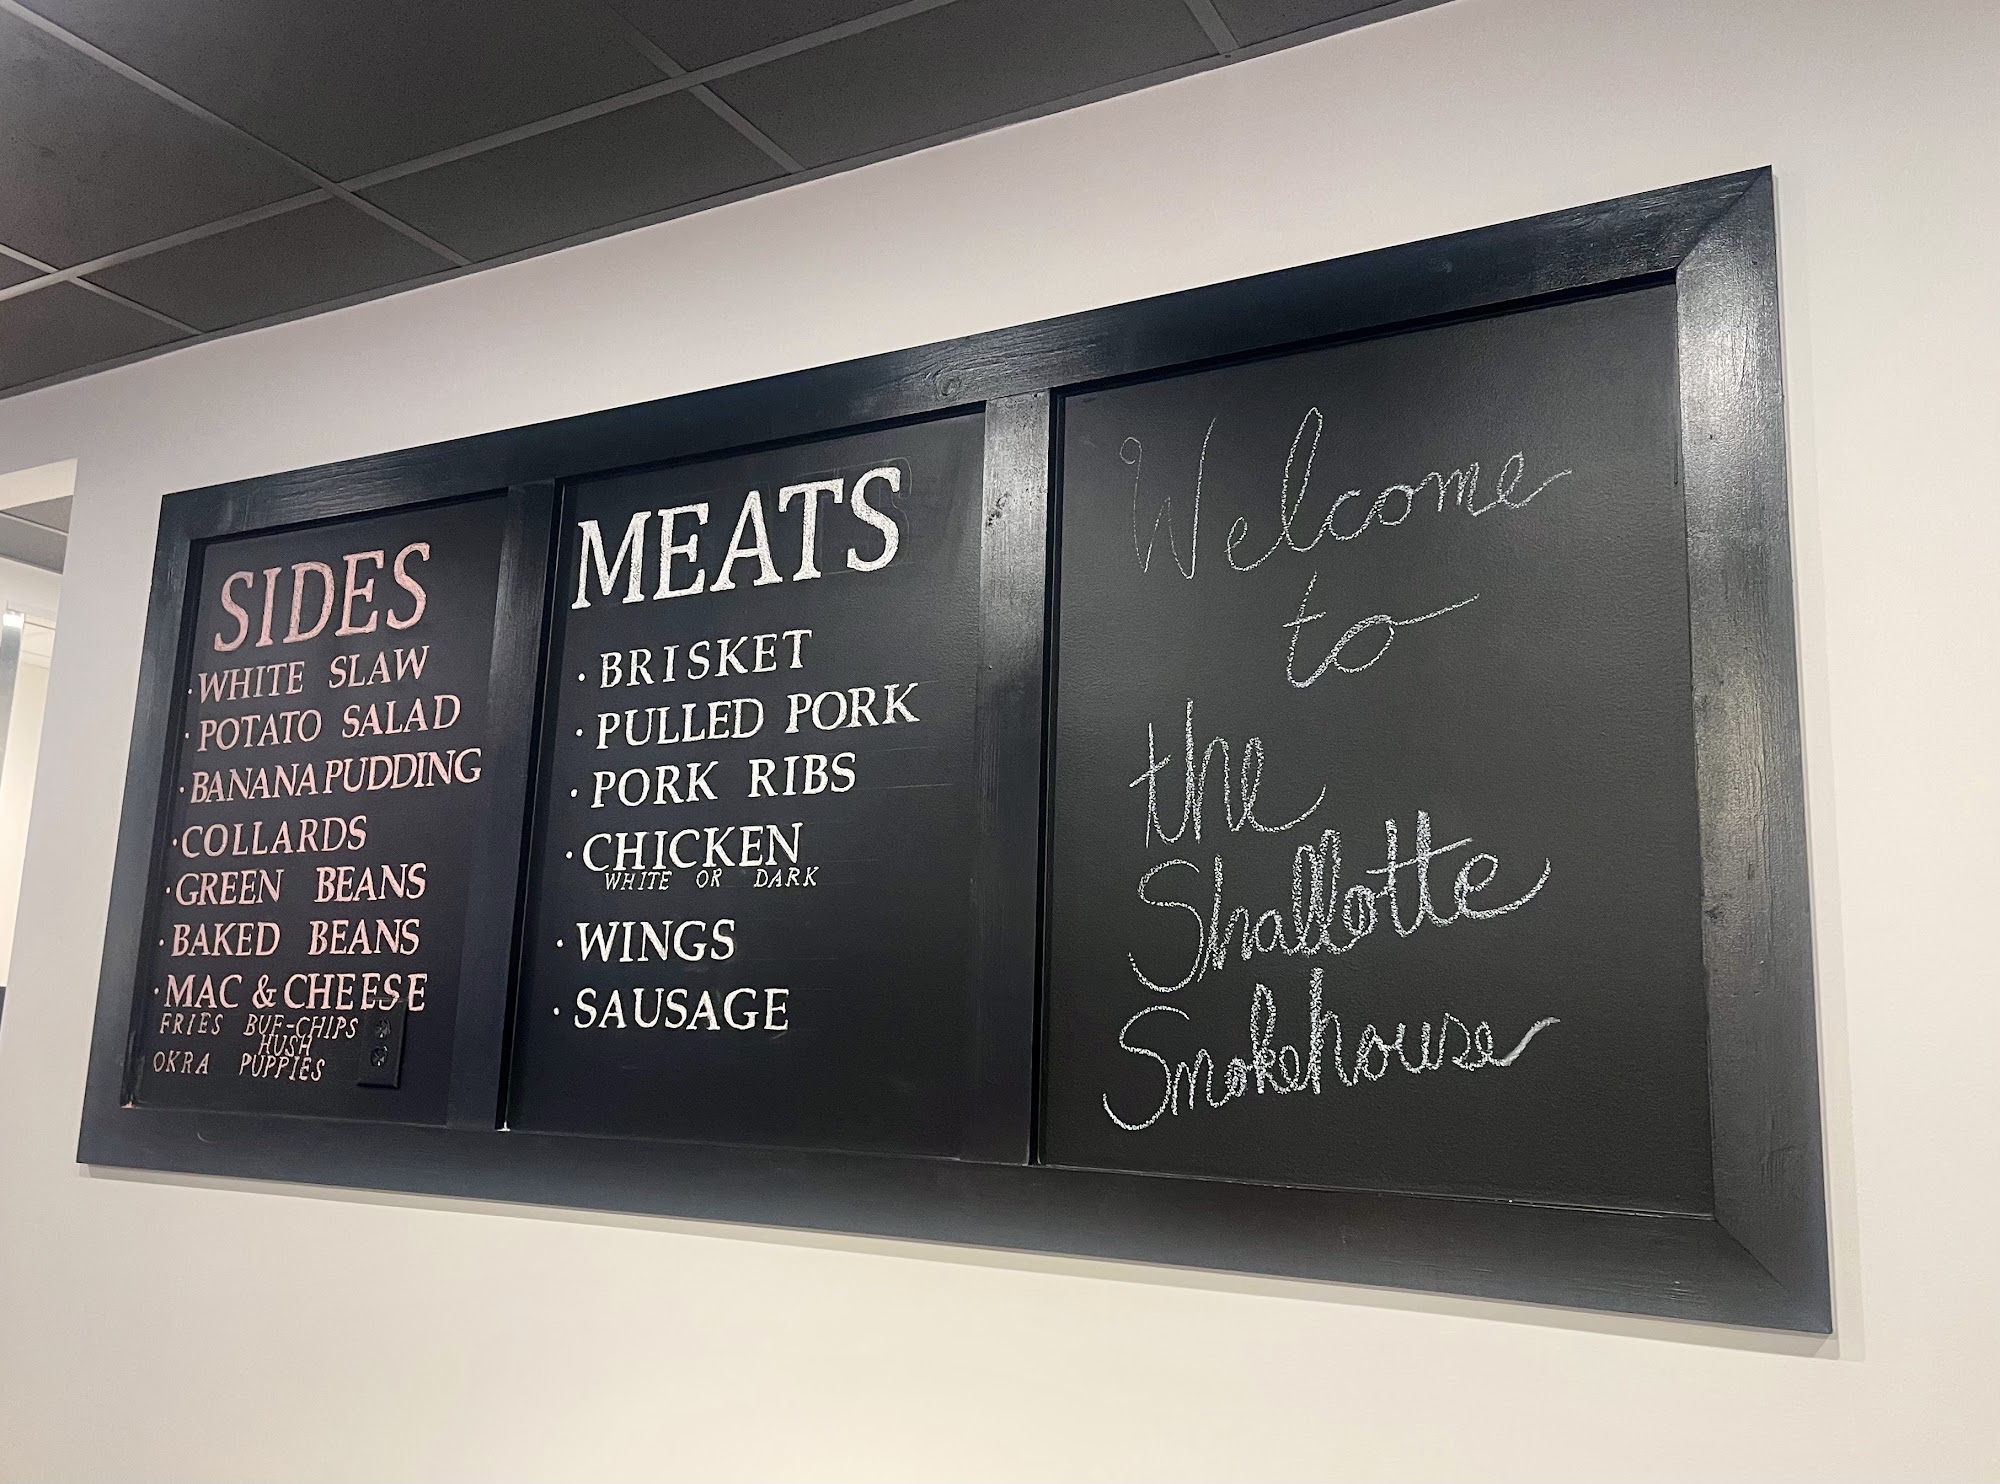 SIDES
· WHITE SLAW
· POTATO SALAD
· BANANA PUDDING
· COLLARDS
· GREEN BEANS
· BAKED BEANS
· MAC & CHEESE
FRIES BUF-CHIPS
HUSH
OKRA PUPPIES
MEATS
· BRISKET
· PULLED PORK
· PORK RIBS
· CHICKEN
WHITE OR DARK
· WINGS
· SAUSAGE
Welcome
to
the
Shallotte
Smokehouse